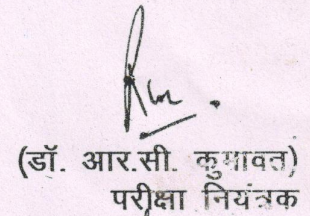 (डॉ. आर.सी. कुमावत)
परीक्षा नियंत्रक